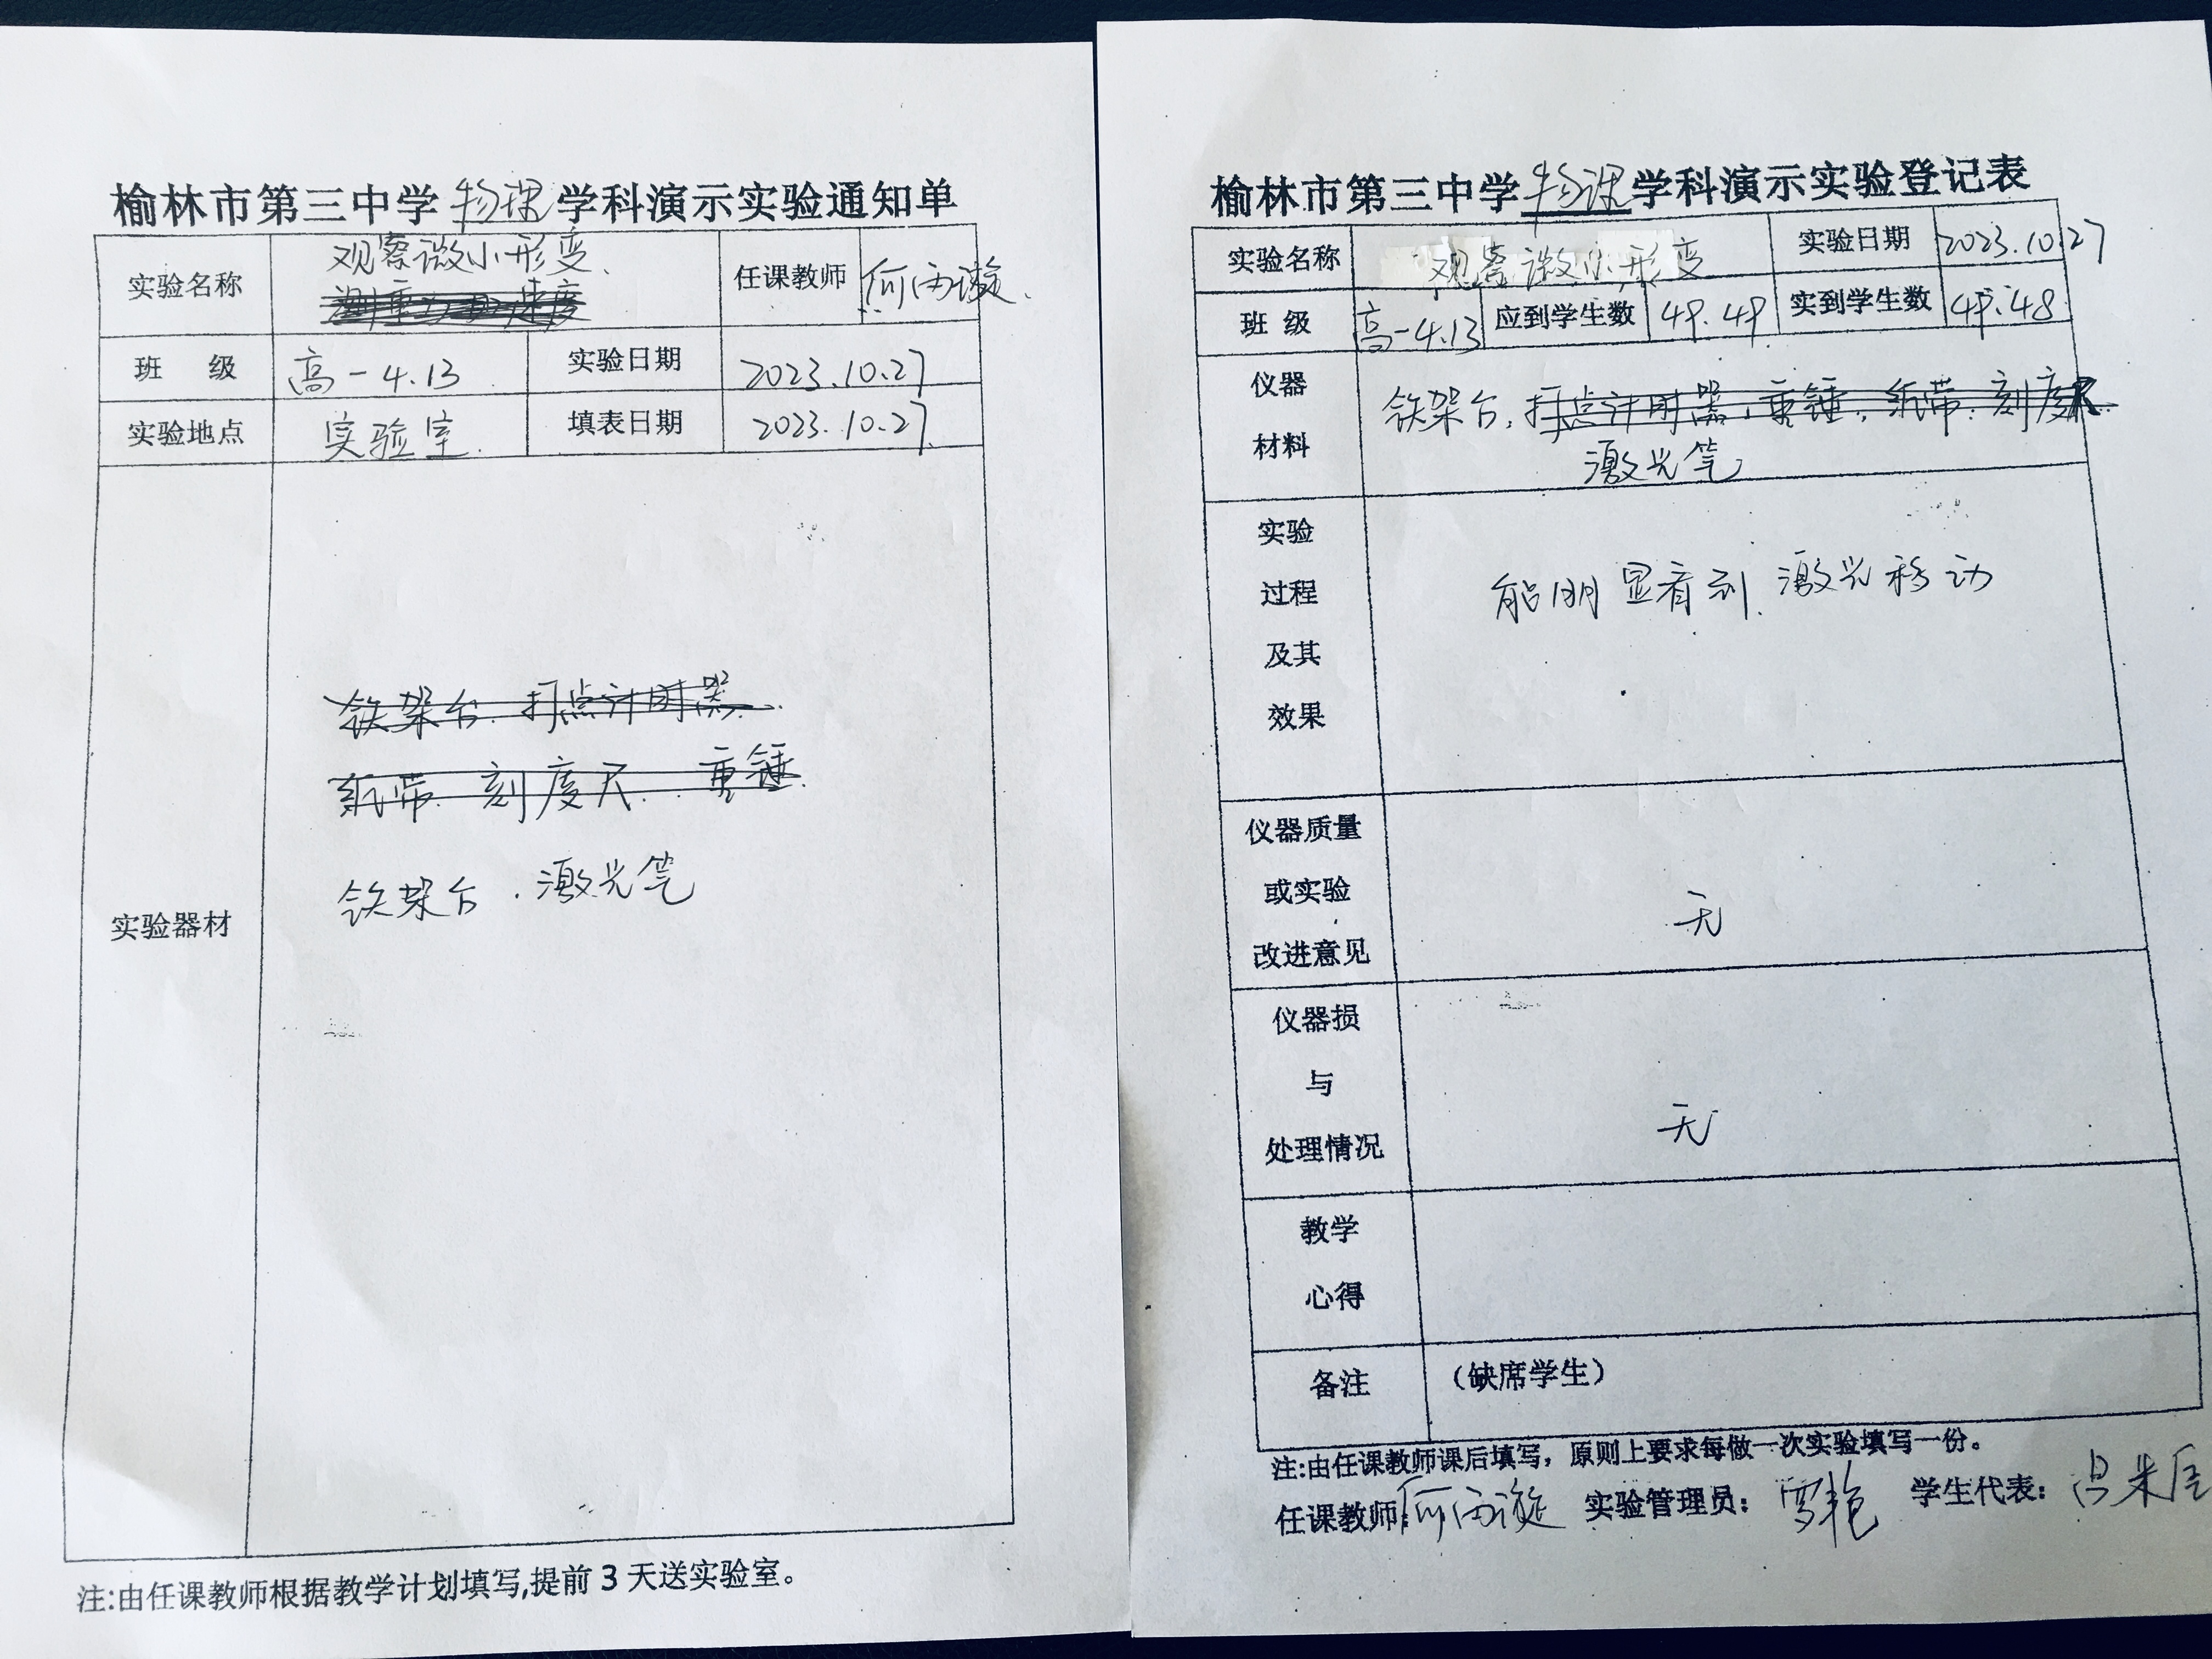 榆林市第三中学物理学科演示实验通知单
实验名称 观察微小形变. 任课教师 何雨漩.
测重力加速度
班 级 高一4.13 实验日期 2023.10.27
实验地点 实验室. 填表日期 2023.10.27.
实验器材
铁架台. 打点计时器.
纸带. 刻度尺. 重锤.
铁架台.激光笔
注:由任课教师根据教学计划填写,提前3天送实验室。
榆林市第三中学物理学科演示实验登记表
实验名称 观察微小形变 实验日期 2023.10.27
班 级 高一4.13 应到学生数 49.49 实到学生数 49.48
仪器
材料
铁架台.打点计时器.重锤.纸带.刻度尺
激光笔
实验
过程
及其
效果
能明显看到激光移动
仪器质量
或实验
改进意见
无
仪器损
与
处理情况
无
教学
心得
备注 (缺席学生)
注:由任课教师课后填写,原则上要求每做一次实验填写一份。
任课教师:何雨漩 实验管理员: 学生代表: